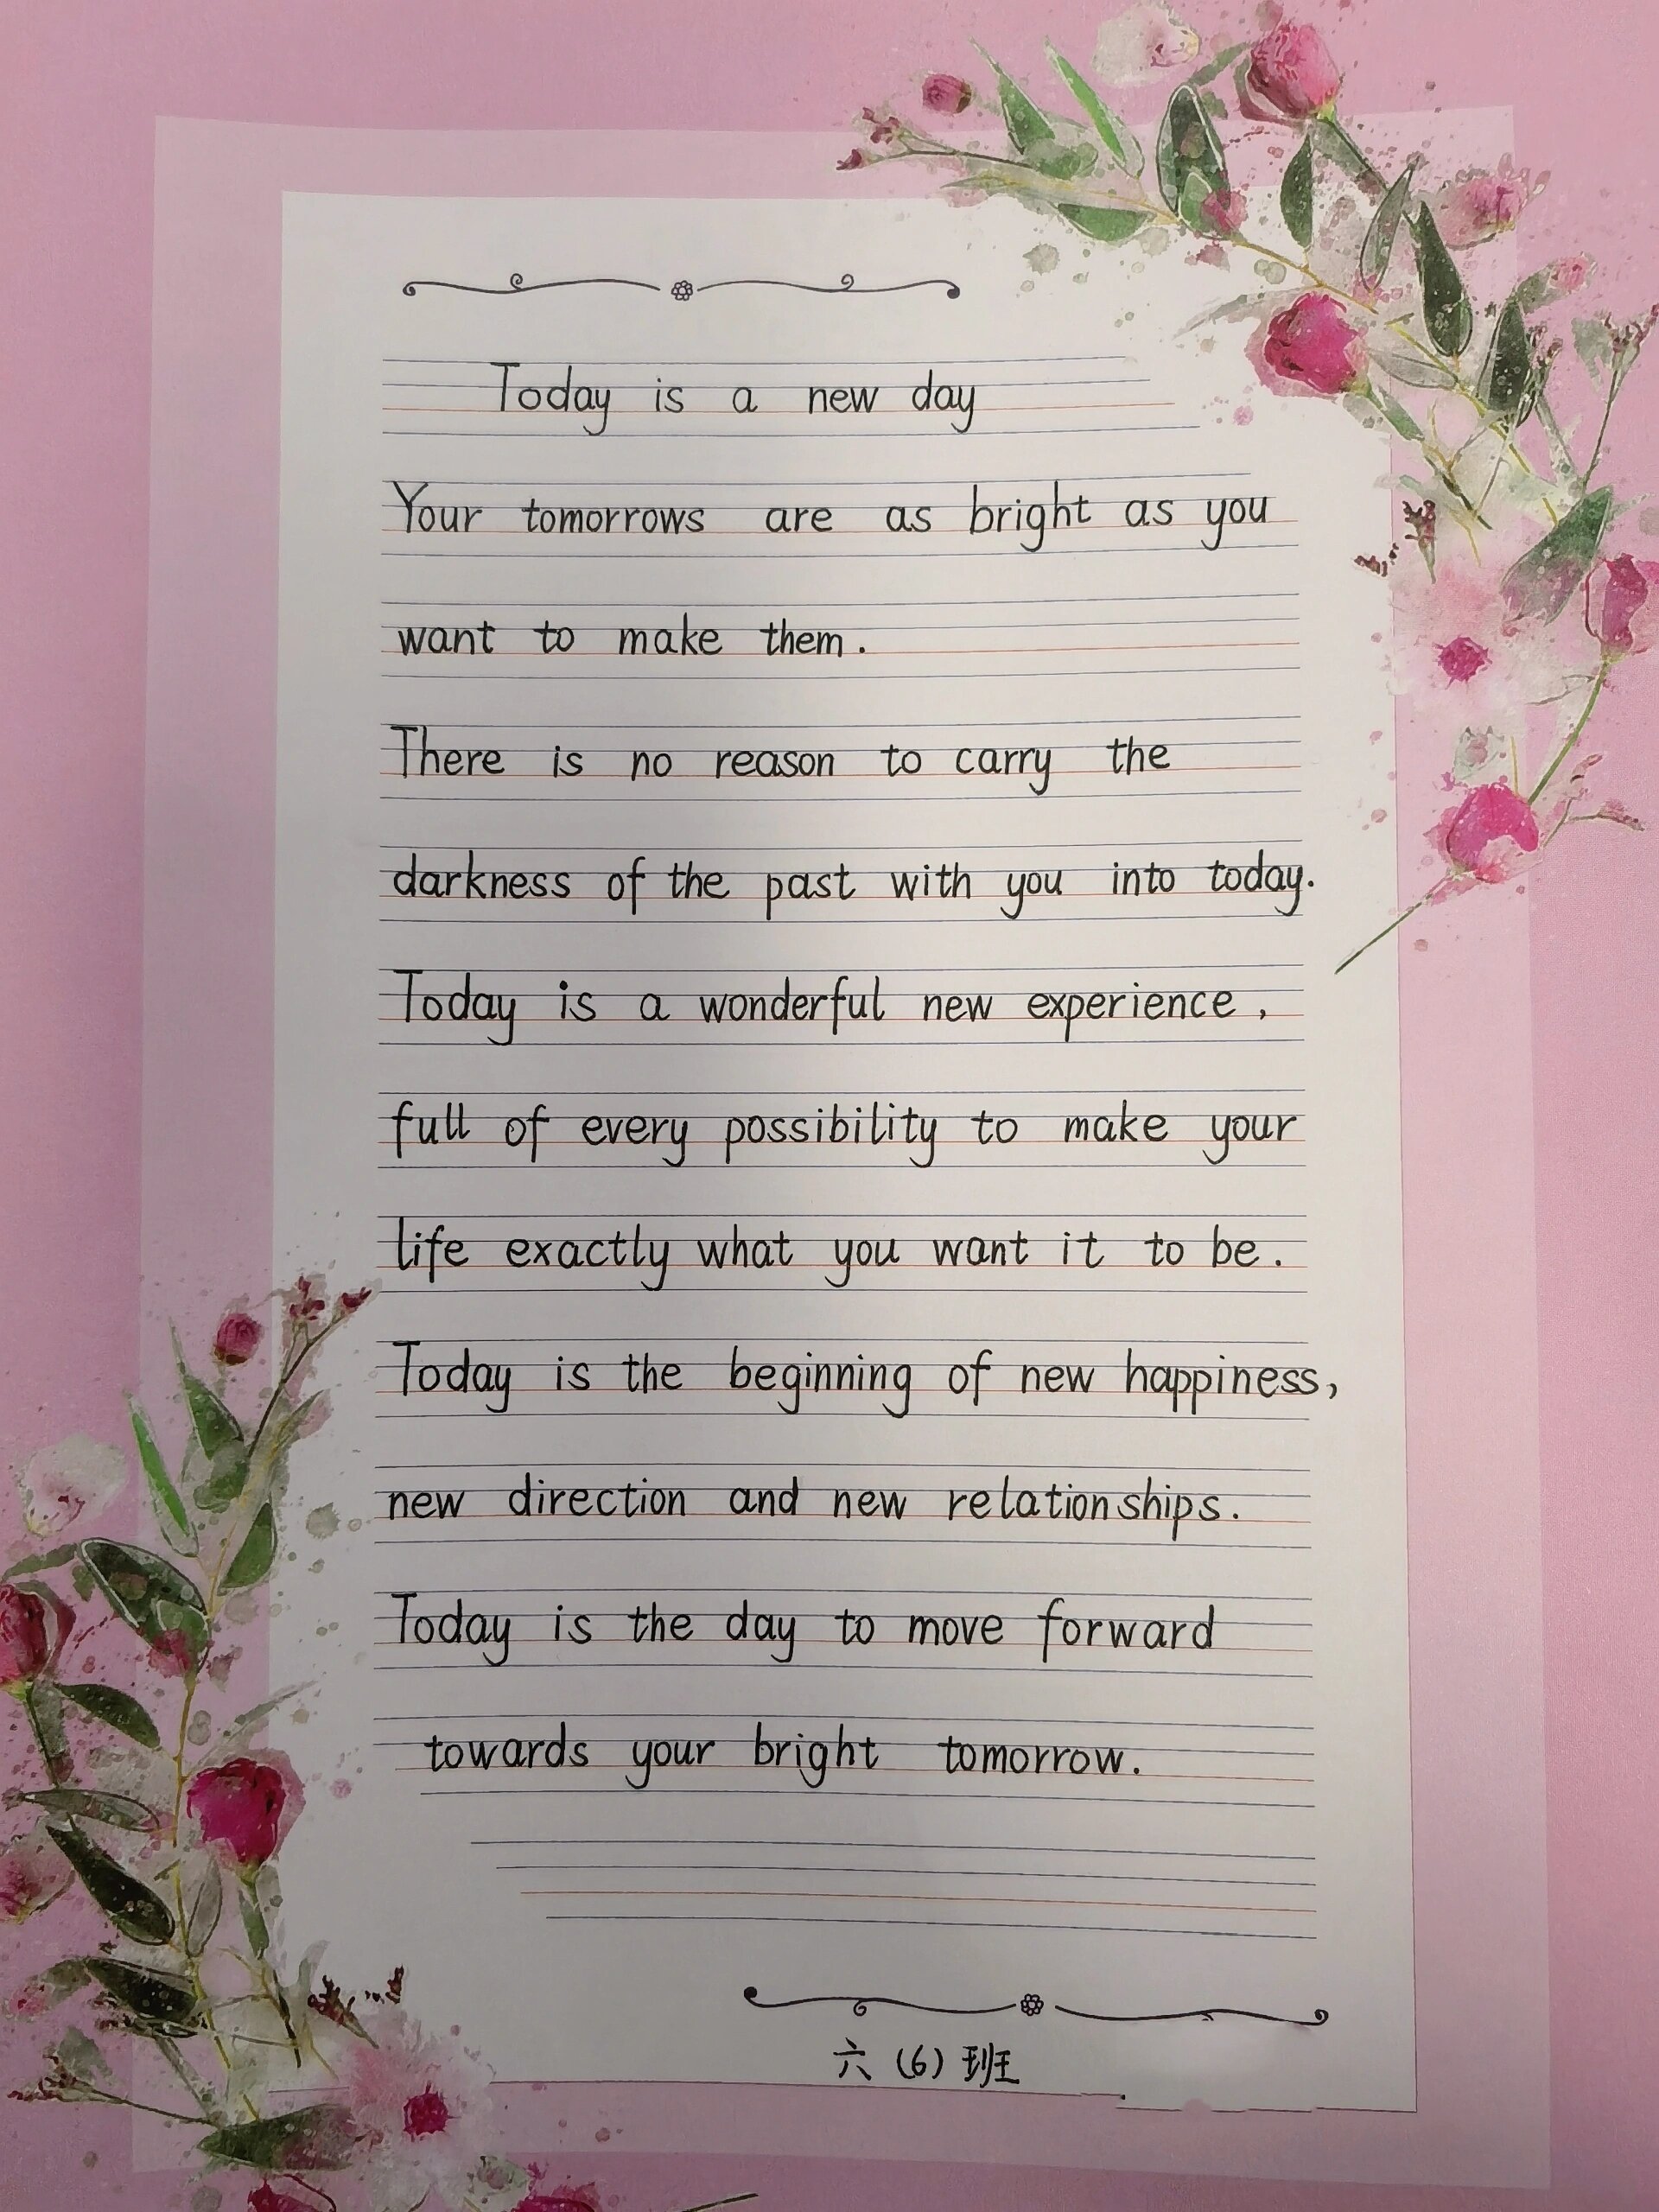 Today is a new day
Your tomorrows are as bright as you
want to make them.
There is no reason to carry the
darkness of the past with you into today.
Today is a wonderful new experience,
full of every possibility to make your
life exactly what you want it to be.
Today is the beginning of new happiness,
new direction and new relationships.
Today is the day to move forward
towards your bright tomorrow.
六(6)班